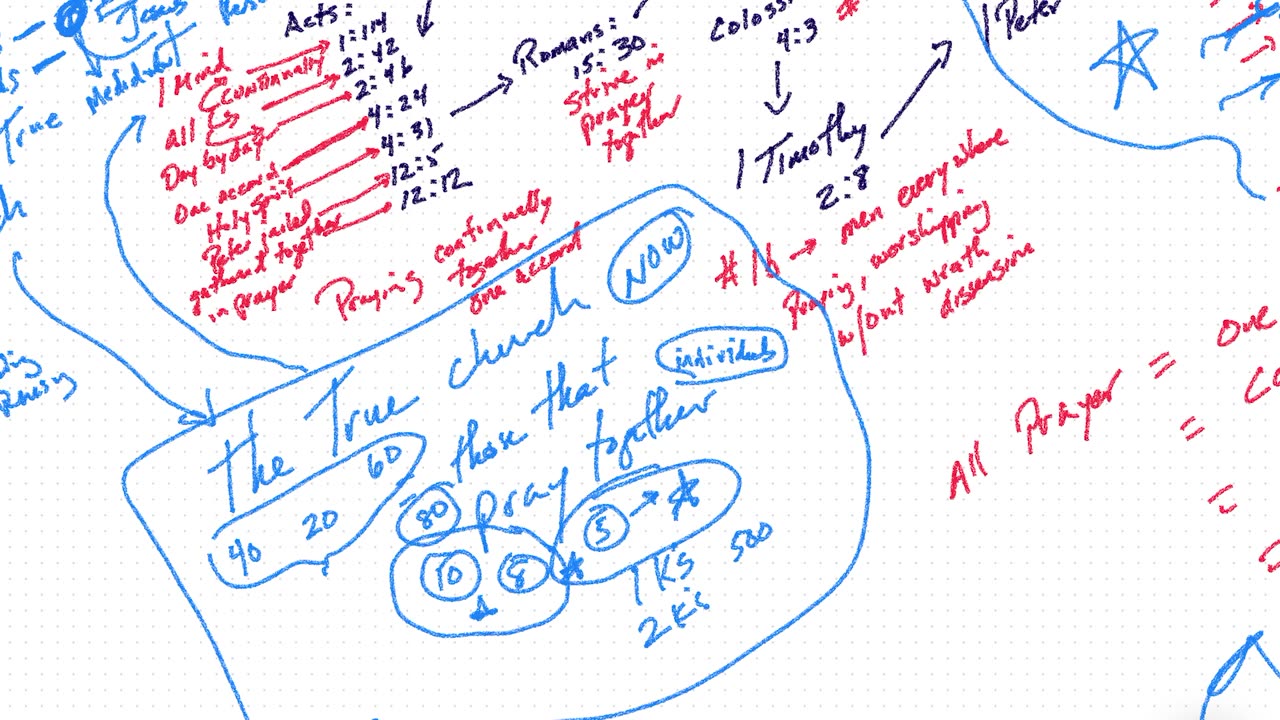 Jesus
True Mediator
Acts:
1 Mind
1:14
All continually
2:42
Day by day
2:46
one accord
4:24
Holy Spirit
4:31
Peter jailed
12:5
gathered together
12:12
in prayer
Praying continually
together
one accord
Romans:
15:30
strive in
prayer
together
4:3
1 Timothy
2:8
1 Peter
#16 → men everywhere
Praying, worshipping
w/out wrath
dissension
The True church NOW
those that individuals
pray together
40 20 60
80
10 8
5 →
1 Ks 500
2 Ks
All Prayer = one
=
=